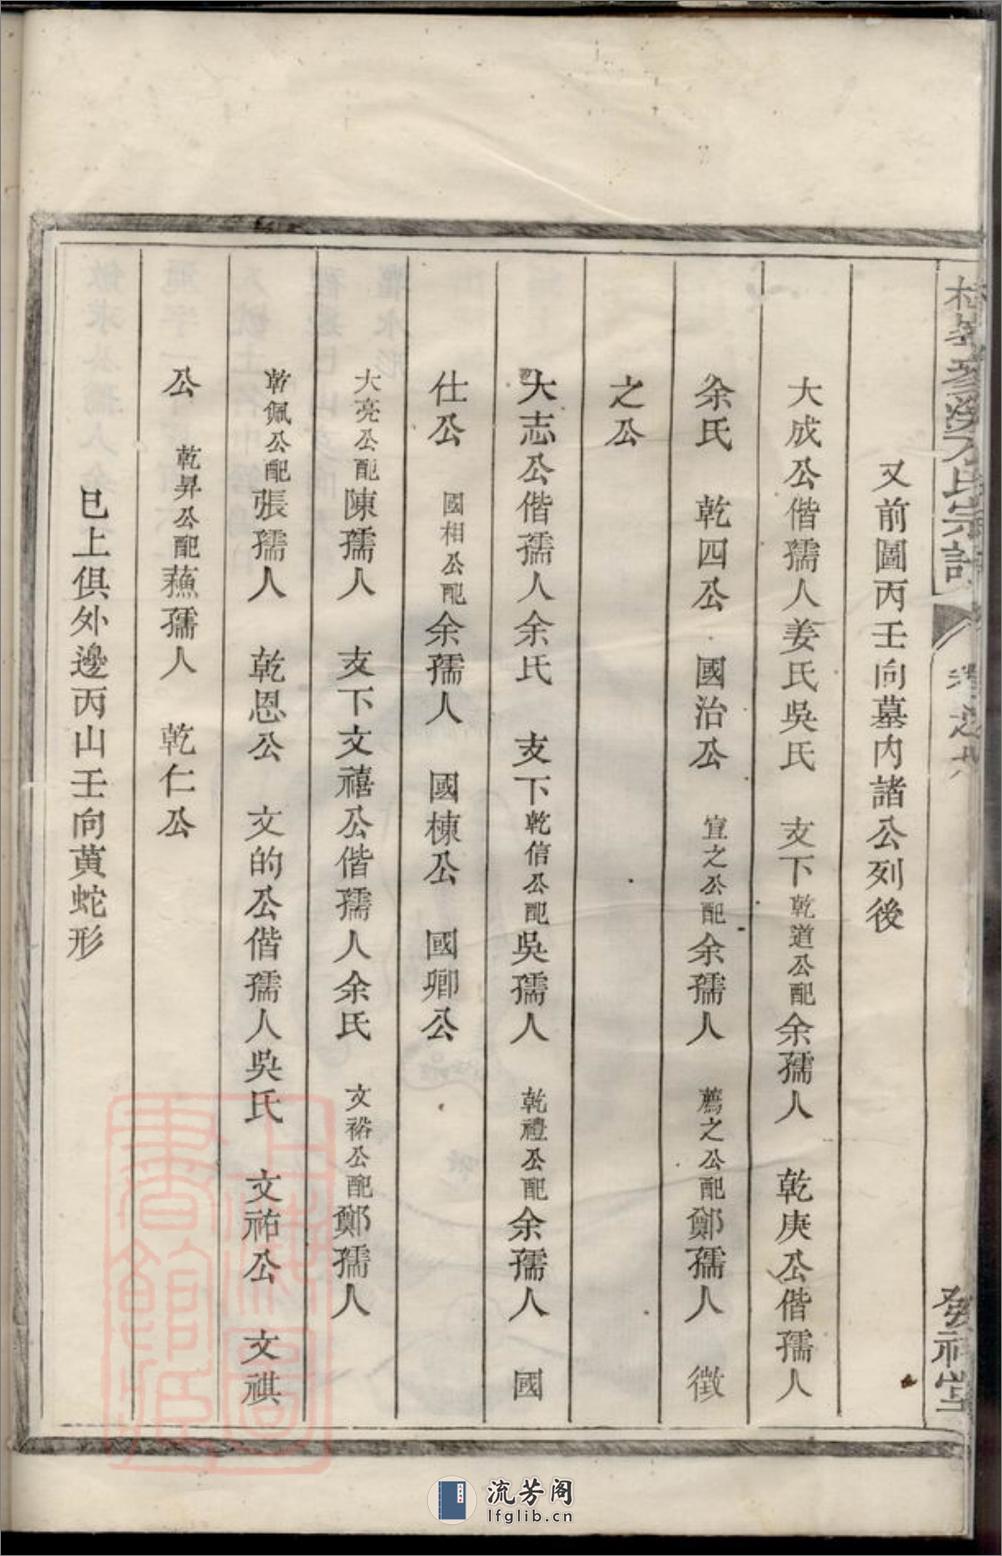 又前圖丙壬向墓内諸公列後
大成公偕孺人姜氏吳氏 支下乾道公配余孺人 乾庚公偕孺人
余氏 乾四公 國治公 宜之公配余孺人 薦之公配鄭孺人 徵
之公
大志公偕孺人余氏 支下乾信公配吳孺人 乾禮公配余孺人 國
仕公 國相公配余孺人 國棟公 國卿公
大亮公配陳孺人 支下文禧公偕孺人余氏 文裕公配鄭孺人
乾佩公配張孺人 乾恩公 文的公偕孺人吳氏 文祐公 文祺
公 乾昇公配蕪孺人 乾仁公
已上俱外邊丙山壬向黃蛇形
方氏宗譜 卷之六 發祥堂
上海圖書館藏
流芳阁
lfglib.cn